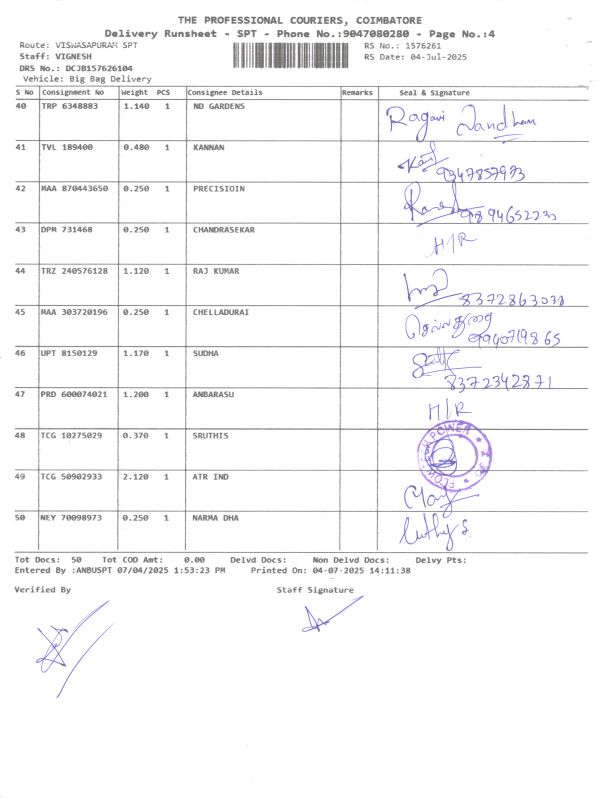 THE PROFESSIONAL COURIERS, COIMBATORE
Delivery Runsheet - SPT - Phone No.:9047080280 - Page No.:4
Route: VISWASAPURAM SPT RS No.: 1576261
Staff: VIGNESH RS Date: 04-Jul-2025
DRS No.: DCJB157626104
Vehicle: Big Bag Delivery
S No Consignment No Weight PCS Consignee Details Remarks Seal & Signature
40 TRP 6348883 1.140 1 ND GARDENS Ragavi Nandham
41 TVL 189400 0.480 1 KANNAN
9347857973
42 MAA 870443650 0.250 1 PRECISIOIN
9894652230
43 DPM 731468 0.250 1 CHANDRASEKAR H/R
44 TRZ 240576128 1.120 1 RAJ KUMAR
8372863038
45 MAA 303720196 0.250 1 CHELLADURAI செல்லதுரை
9940719865
46 UPT 8150129 1.170 1 SUDHA
8372342871
47 PRD 600074021 1.200 1 ANBARASU H/R
48 TCG 10275029 0.370 1 SRUTHIS
49 TCG 50902933 2.120 1 ATR IND
50 NEY 70098973 0.250 1 NARMA DHA
Tot Docs: 50 Tot COD Amt: 0.00 Delvd Docs: Non Delvd Docs: Delvy Pts:
Entered By :ANBUSPT 07/04/2025 1:53:23 PM Printed On: 04-07-2025 14:11:38
Verified By Staff Signature